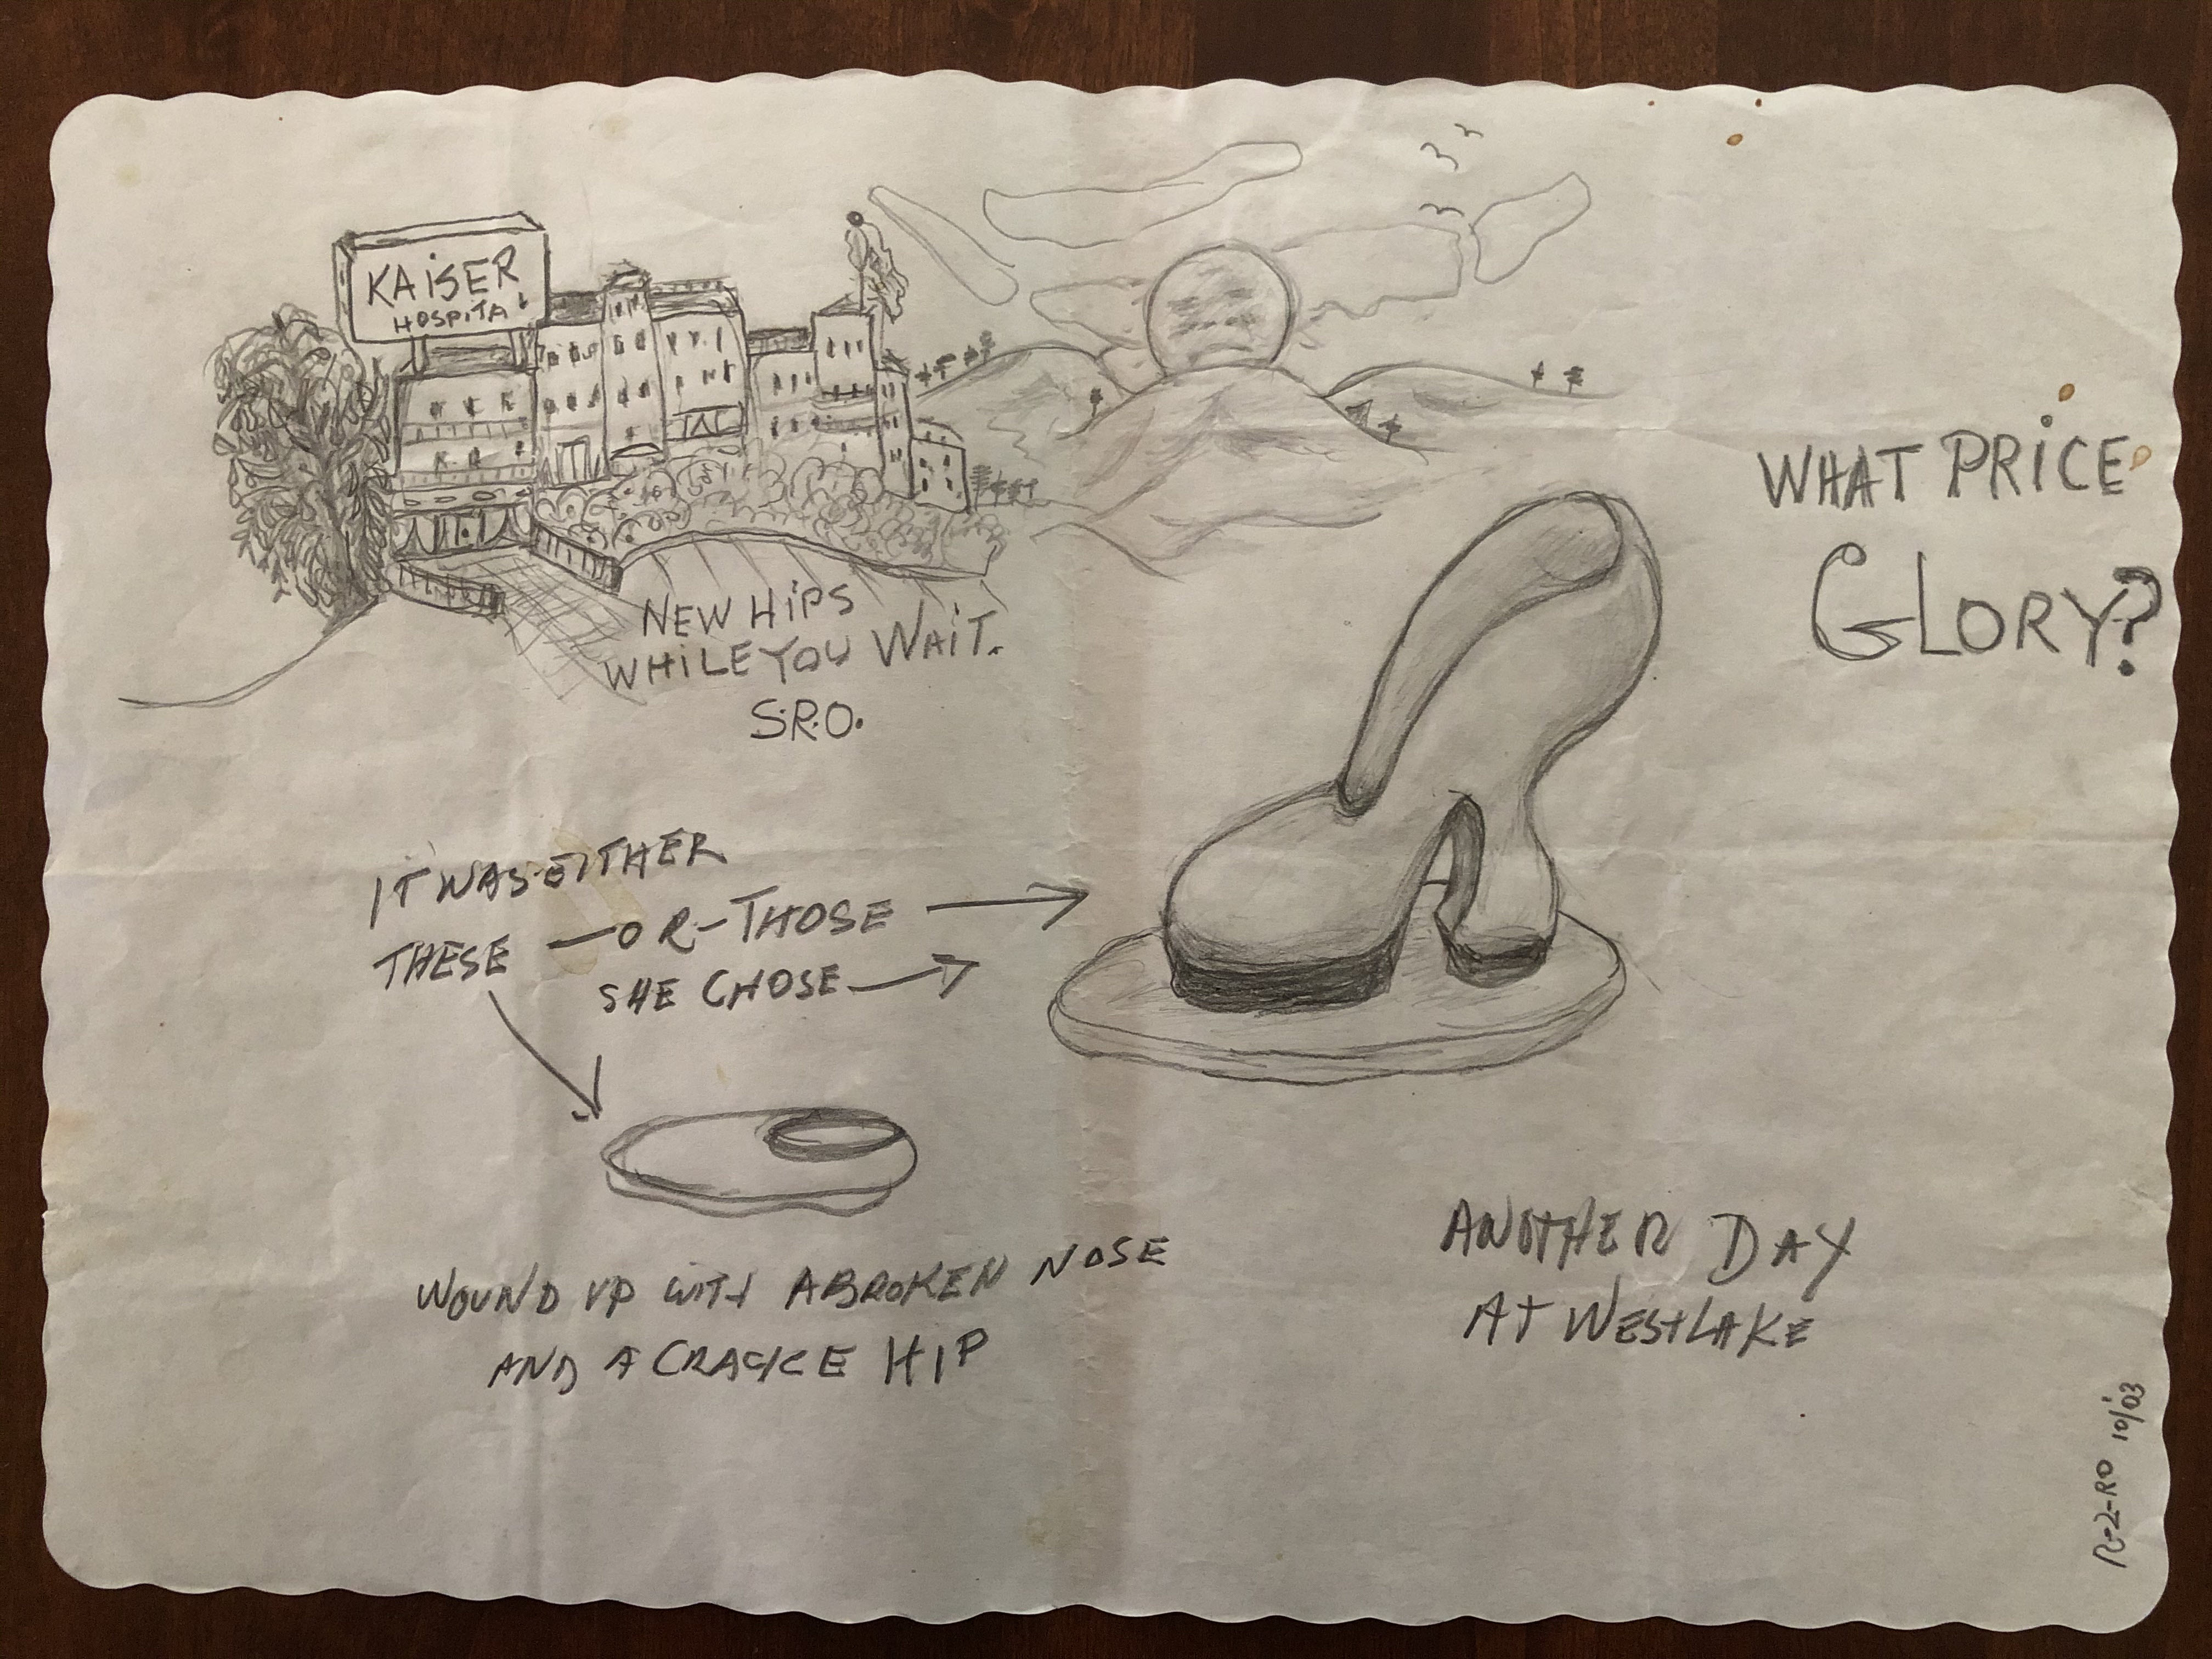 KAiSER
HOSPITAL
WHAT PRiCE
GLORY?
NEW HiPS
WHiLE YOU WAiT.
S.R.O.
IT WAS EITHER
THESE — OR - THOSE
SHE CHOSE
WOUND UP WITH A BROKEN NOSE
AND A CRACKE HIP
ANOTHER DAY
AT WESTLAKE
R-2-RO 10/'03